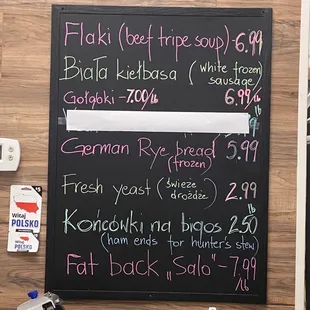 Flaki (beef tripe soup) - 6.99
Biała kiełbasa (white frozen sausage)
6.99/lb
Gołąbki - 7.00/lb
German Rye bread 5.99
(frozen)
Fresh yeast (świeże drożdże) 2.99
Końcówki na bigos 2.50 lb
(ham ends for hunter's stew)
Fat back „Salo" - 7.99 /lb
Witaj
POLSKO
Witaj
POLSKO